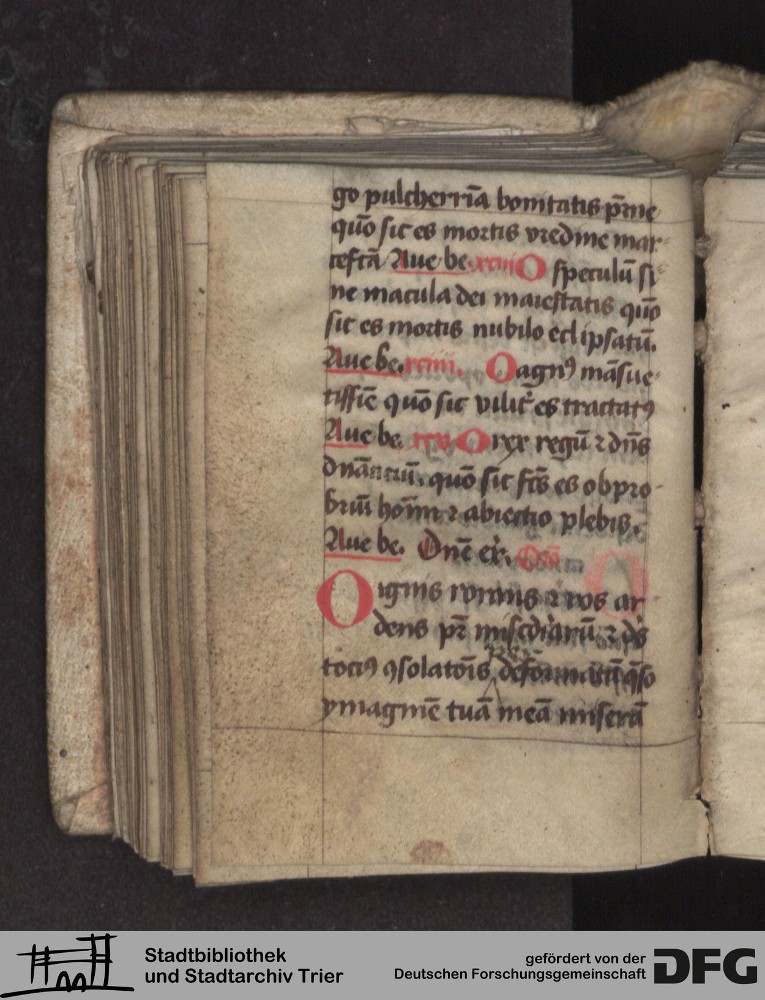 go pulcherrīa bonitatis p̄me
quō sic es mortis vredine mar-
cefcā Aue be. xciii O speculū si-
ne macula dei maiestatis quō
sic es mortis nubilo eclipsatū.
Aue be. xciiii. O agnꝰ māsue-
tissīe quō sic vilit̄ es tractatꝰ
Aue be. xcv O rex regū ⁊ dn̄s
dn̄anciū. quō sic fc̄s es obpro-
briū hoīm ⁊ abiectio plebis.
Aue be. Dn̄e ex̄. Orō
O ignis ⁊ ros ar-
dens pr̄ mīscd̓iarū ⁊ d̓s
tociꝰ ꝯsolatōīs deformatā q̄so
ymaginē tuā meā miserā
Stadtbibliothek
und Stadtarchiv Trier
gefördert von der
Deutschen Forschungsgemeinschaft
DFG